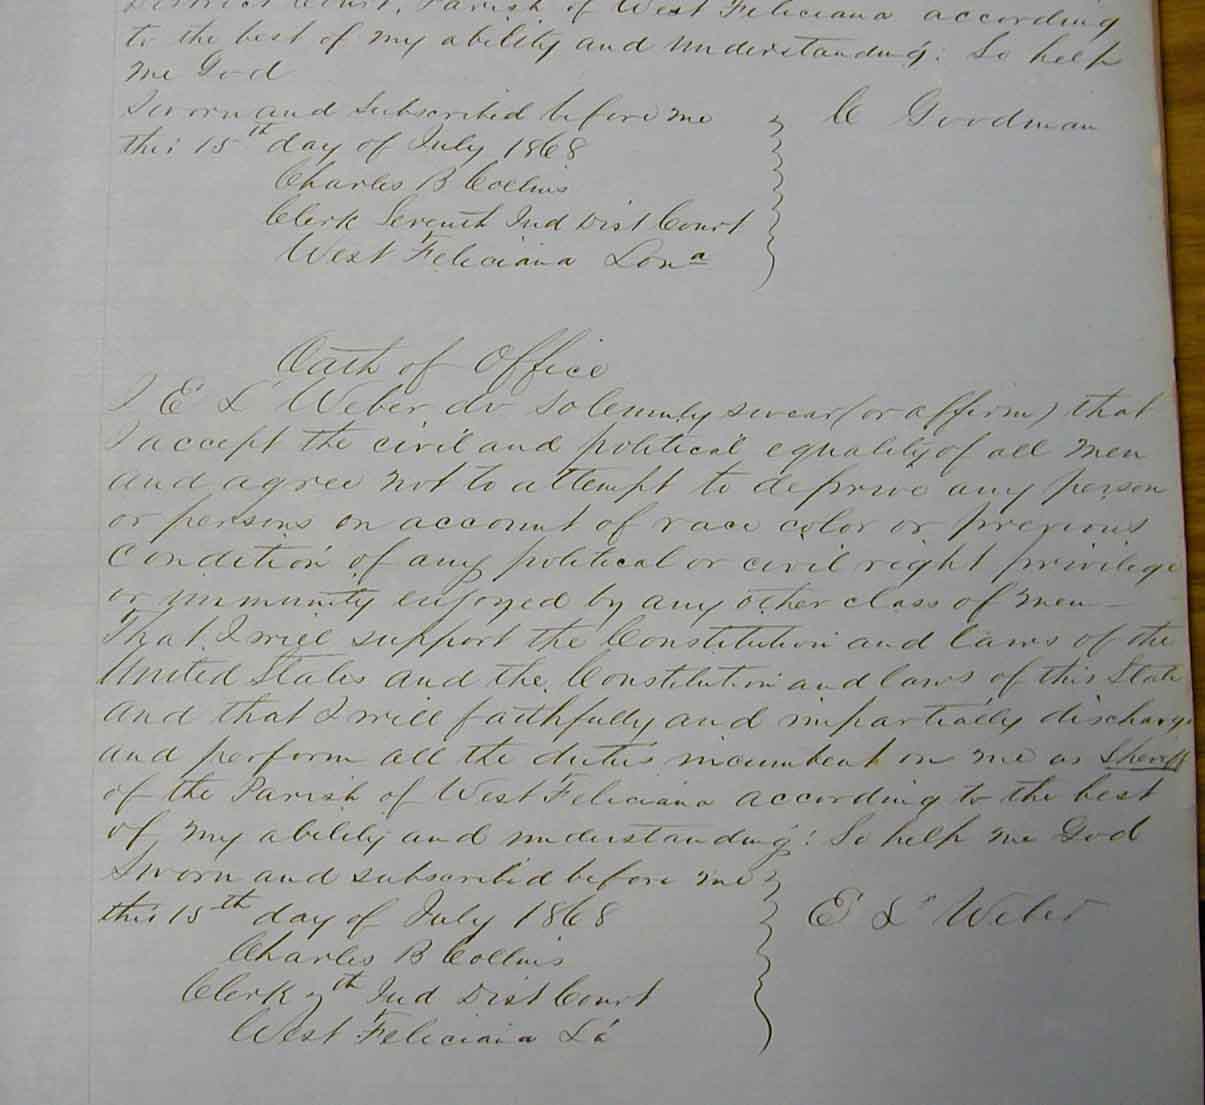 District Court, Parish of West Feliciana according
to the best of my ability and understanding: So help
me God
Sworn and Subscribed before me
this 15th day of July 1868
C Goodman
Charles B Collins
Clerk Seventh Jud Dist Court
West Feliciana Loua
Oath of Office
I E L Weber do solemnly swear (or affirm) that
I accept the civil and political equality of all men
and agree not to attempt to deprive any person
or persons on account of race color or previous
condition of any political or civil right privilege
or immunity enjoyed by any other class of men—
That I will support the Constitution and laws of the
United States and the Constitution and laws of this State
and that I will faithfully and impartially discharge
and perform all the duties incumbent on me as Sheriff
of the Parish of West Feliciana according to the best
of my ability and understanding: So help me God
Sworn and subscribed before me
this 15th day of July 1868
E L Weber
Charles B Collins
Clerk 7th Jud Dist Court
West Feliciana La